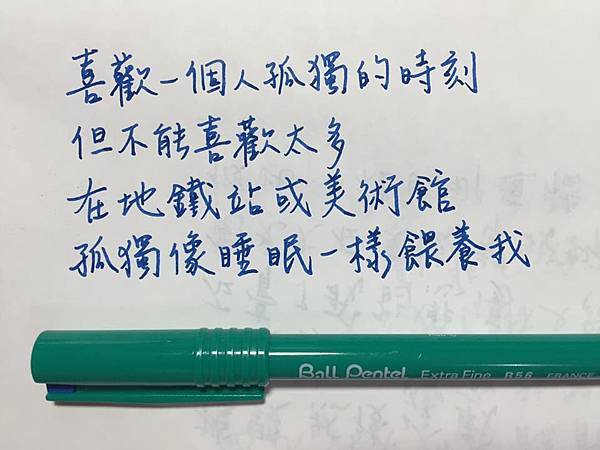 喜歡一個人孤獨的時刻
但不能喜歡太多
在地鐵站或美術館
孤獨像睡眠一樣餵養我
Ball Pentel Extra Fine R56 FRANCE